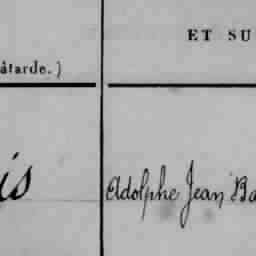 ET SU
âtarde.)
is
Adolphe Jean Ba